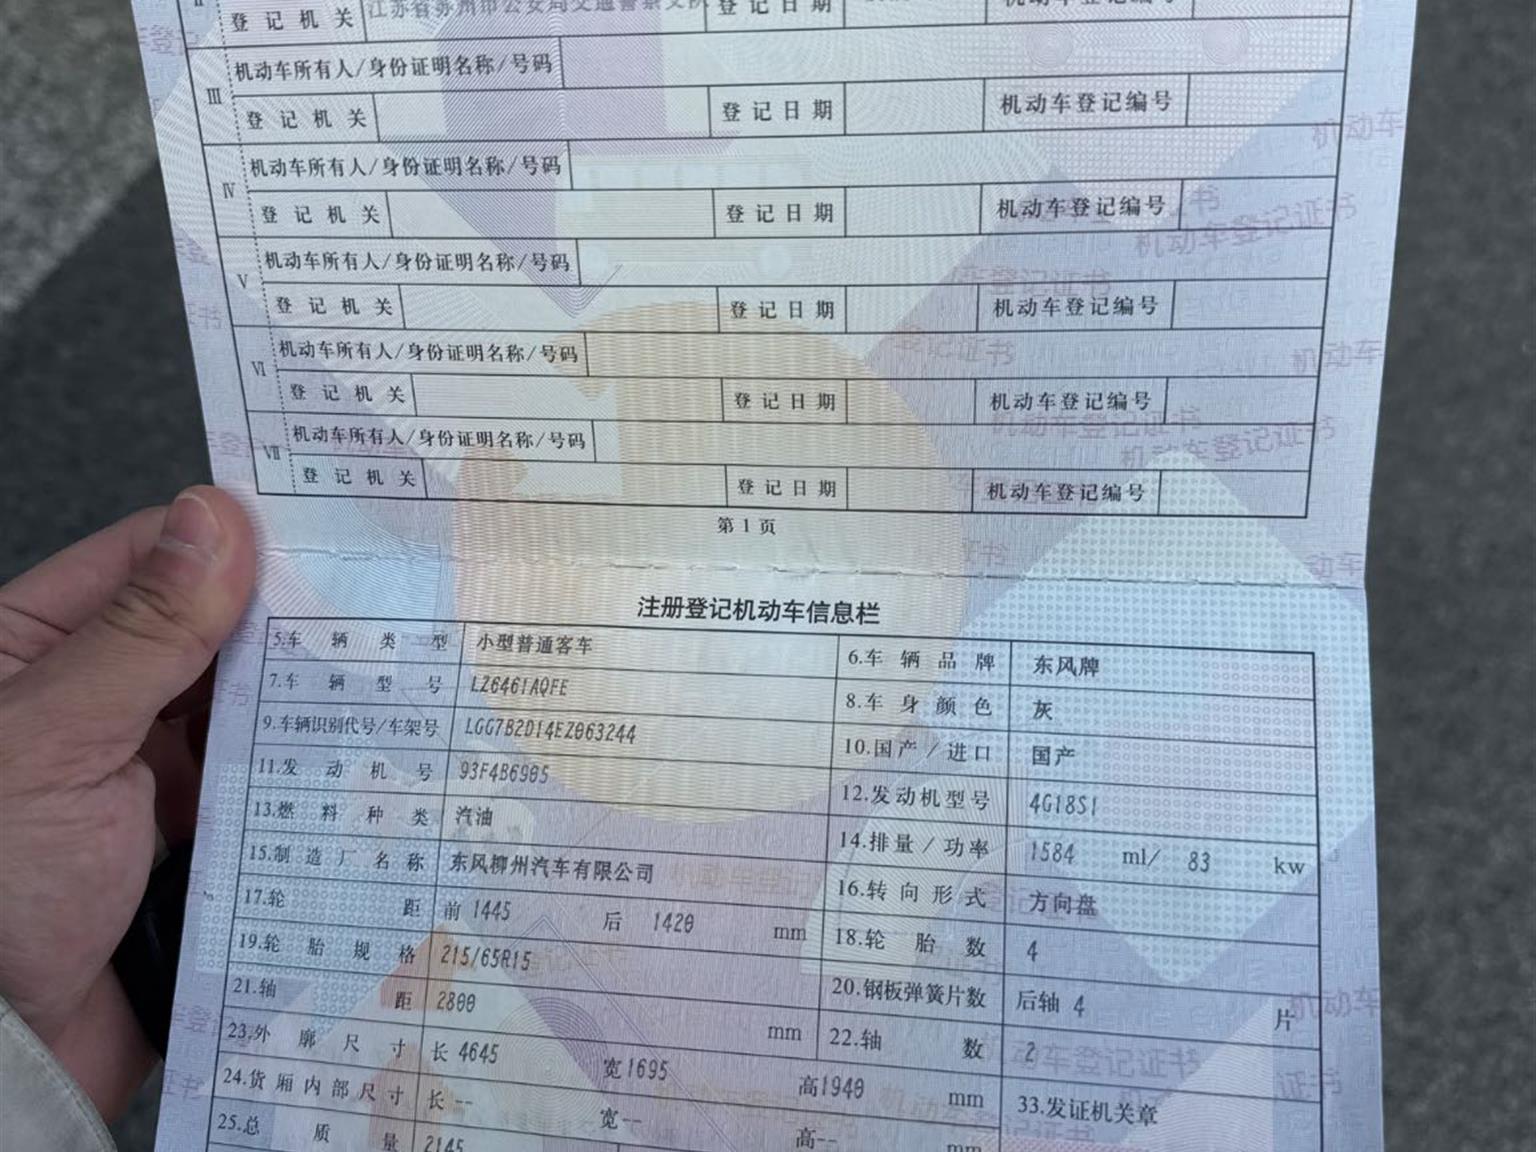 登记机关 江苏省苏州市公安局交通警察支队 登记日期 机动车登记编号
Ⅲ 机动车所有人/身份证明名称/号码
登记机关 登记日期 机动车登记编号
Ⅳ 机动车所有人/身份证明名称/号码
登记机关 登记日期 机动车登记编号
Ⅴ 机动车所有人/身份证明名称/号码
登记机关 登记日期 机动车登记编号
Ⅵ 机动车所有人/身份证明名称/号码
登记机关 登记日期 机动车登记编号
Ⅶ 机动车所有人/身份证明名称/号码
登记机关 登记日期 机动车登记编号
第1页
注册登记机动车信息栏
5.车辆类型 小型普通客车 6.车辆品牌 东风牌
7.车辆型号 LZ6461AQFE 8.车身颜色 灰
9.车辆识别代号/车架号 LGG7B2D14EZ063244 10.国产/进口 国产
11.发动机号 93F4B6905 12.发动机型号 4G18S1
13.燃料种类 汽油 14.排量/功率 1584 ml/ 83 kw
15.制造厂名称 东风柳州汽车有限公司 16.转向形式 方向盘
17.轮距 前 1445 后 1420 mm 18.轮胎数 4
19.轮胎规格 215/65R15 20.钢板弹簧片数 后轴 4 片
21.轴距 2800 mm 22.轴数 2
23.外廓尺寸 长 4645 宽 1695 高 1940 mm 33.发证机关章
24.货厢内部尺寸 长 -- 宽 -- 高 -- mm
25.总质量 2145